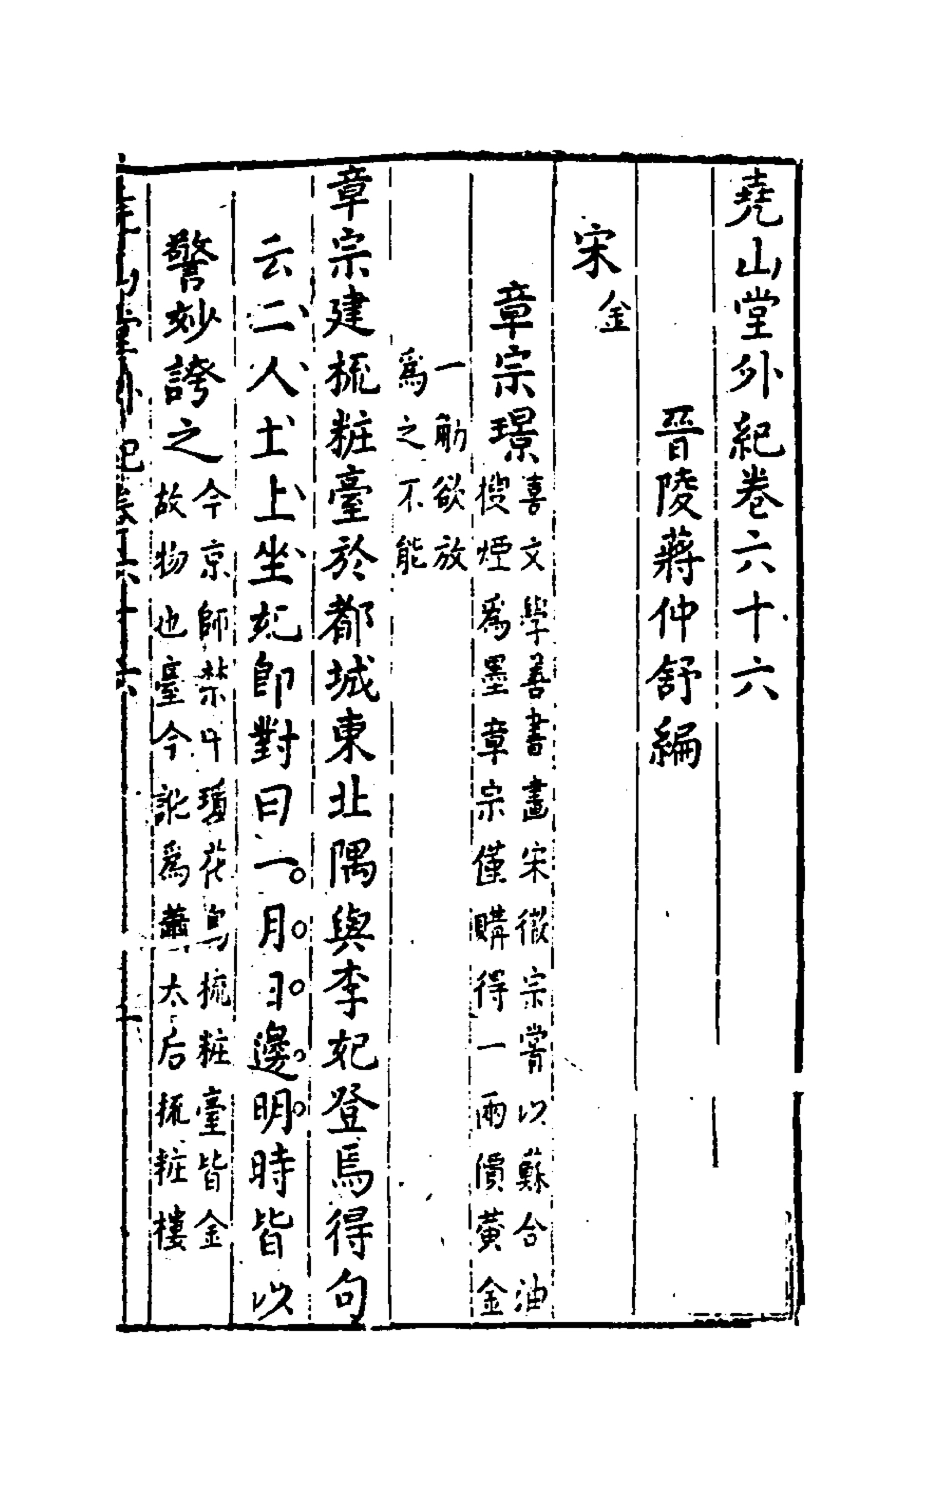 堯山堂外紀卷六十六
晉陵蔣仲舒編
宋金
章宗璟
喜文學善書畫宋徽宗嘗以蘇合油
搜煙爲墨章宗僅購得一兩價黃金
一觔欲放
爲之不能
章宗建梳粧臺於都城東北隅與李妃登焉得句
云二人土上坐妃即對曰一月日邊明時皆以
警妙誇之
今京師禁中瓊花島梳粧臺皆金
故物也臺今訛爲蕭太后梳粧樓
堯山堂外紀卷六十六 一